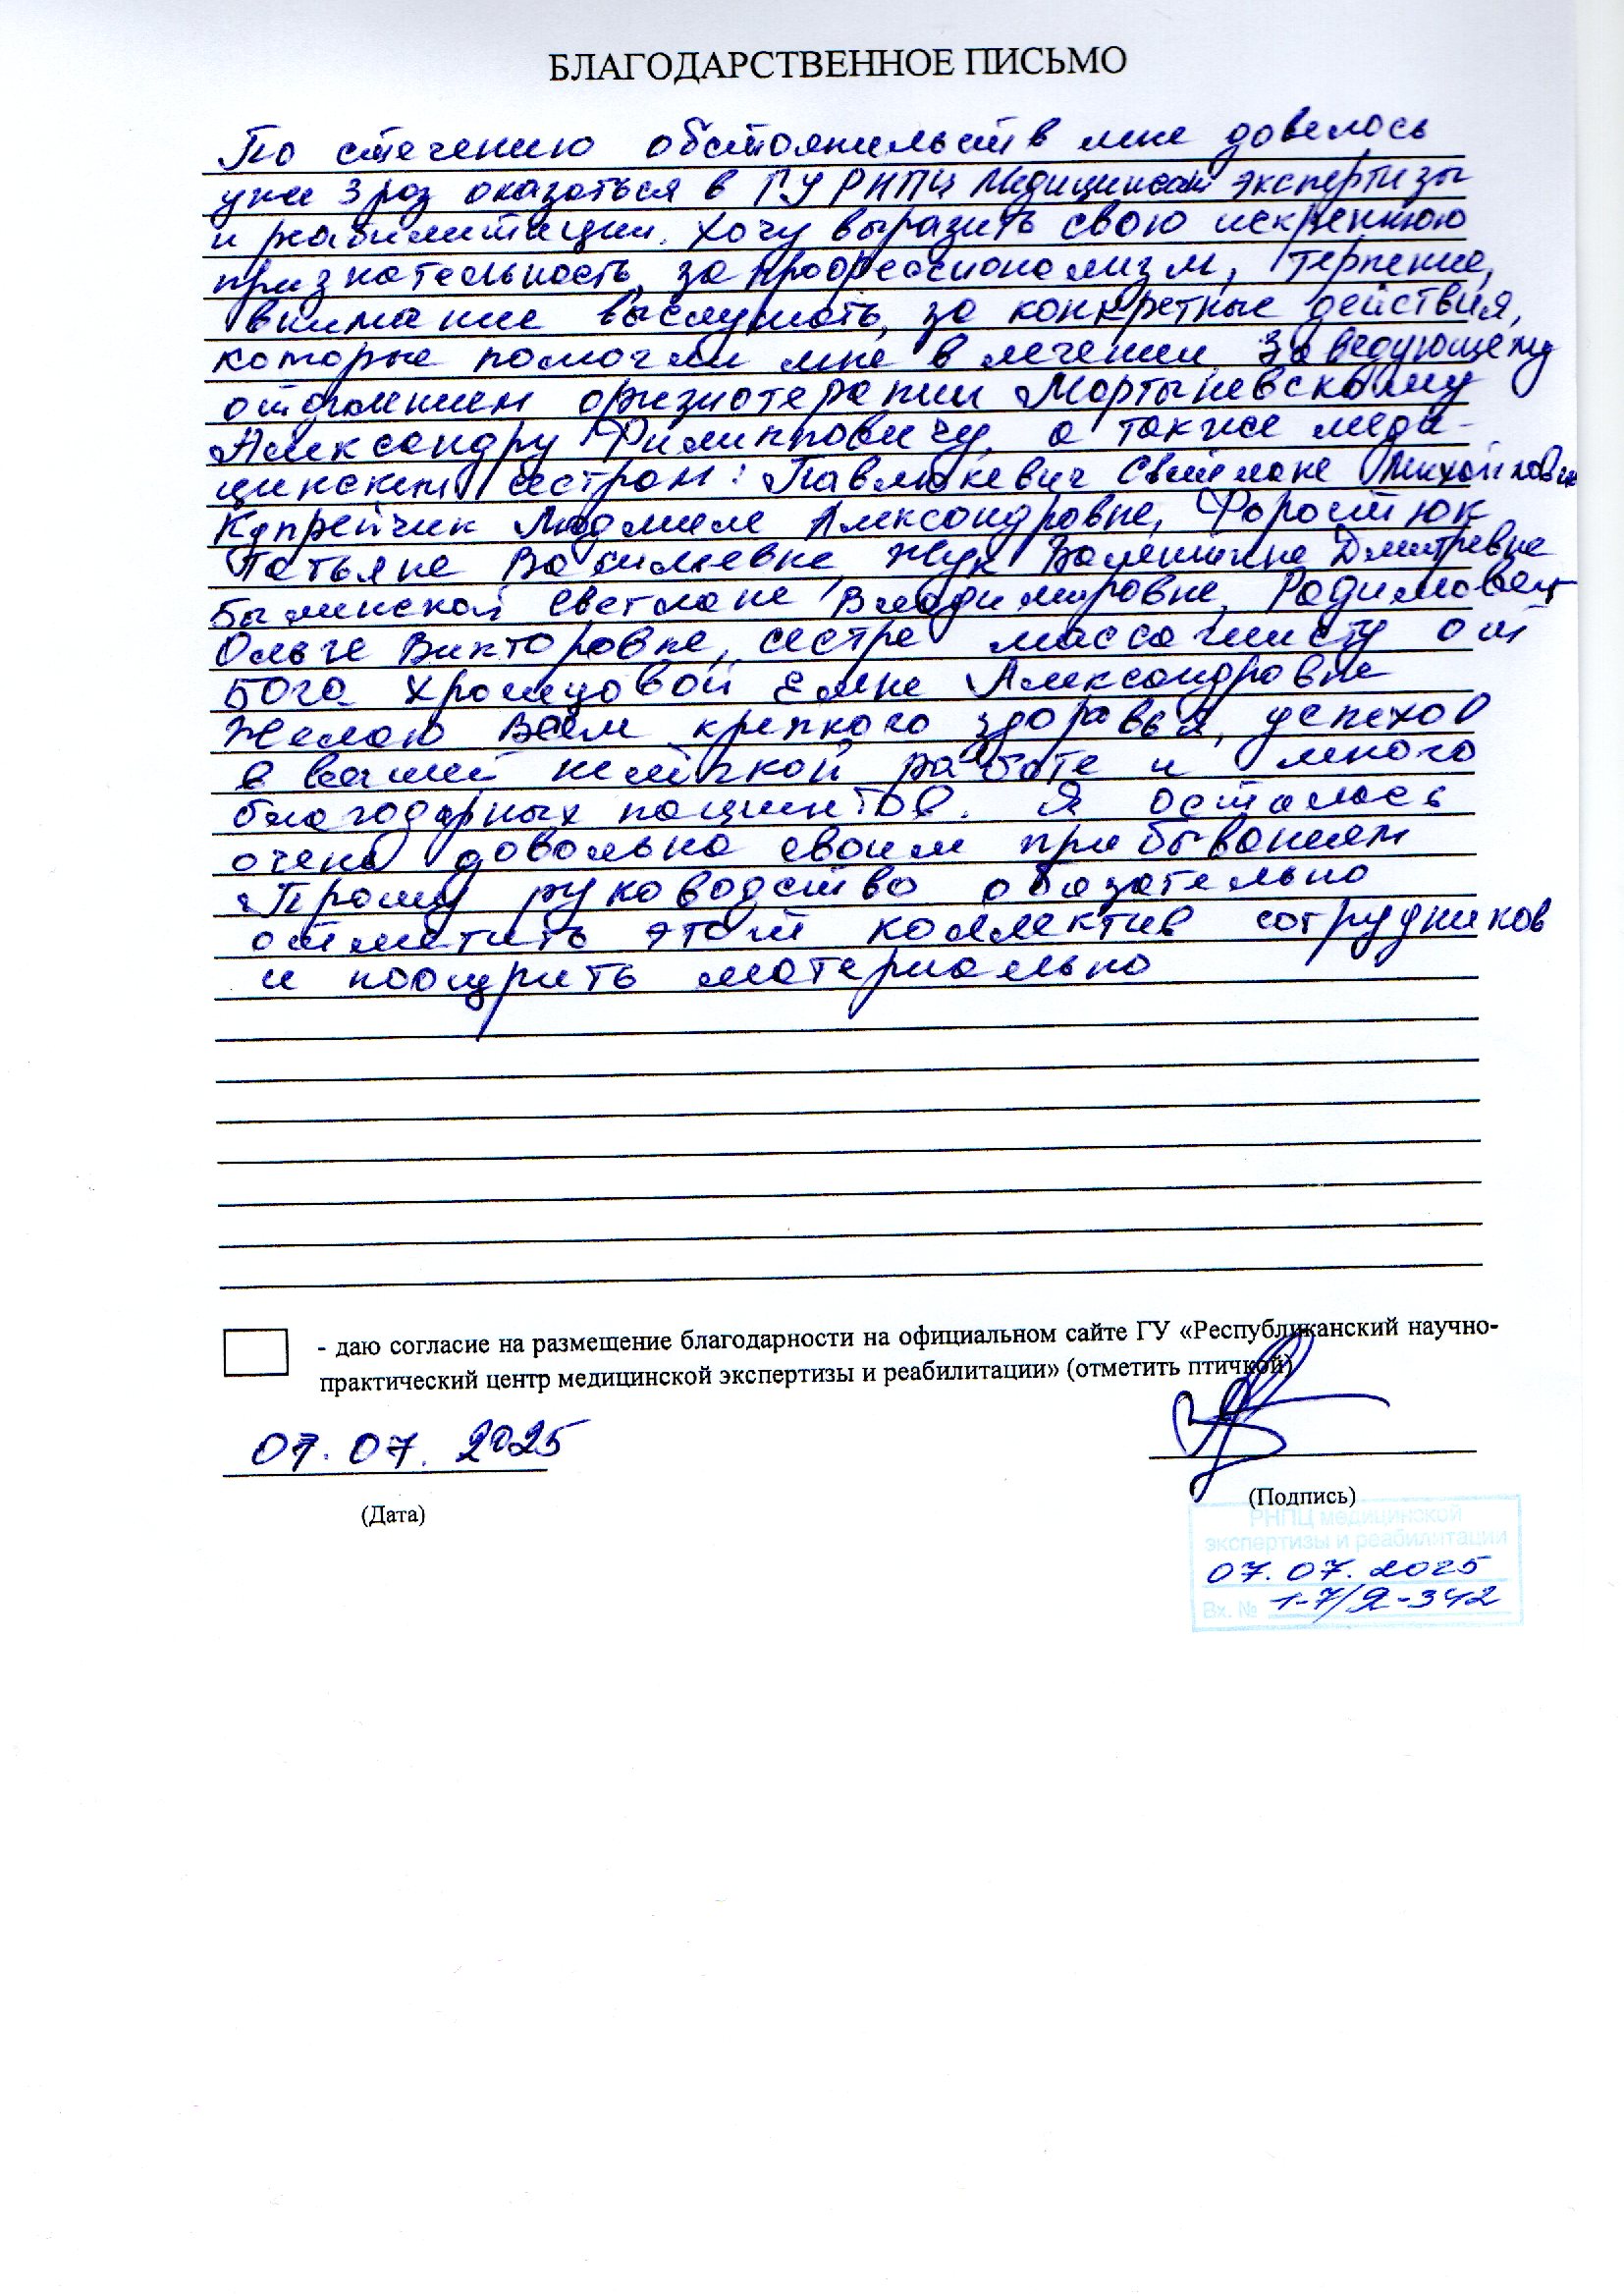 БЛАГОДАРСТВЕННОЕ ПИСЬМО
По стечению обстоятельств мне довелось
уже 3 раз оказаться в ГУ РНПЦ Медицинской экспертизы
и реабилитации. Хочу выразить свою искреннюю
признательность за профессионализм, терпение,
внимание выслушать, за конкретные действия,
которые помогли мне в лечении Заведующему
отделением физиотерапии Мартыневскому
Александру Филипповичу, а также меди-
цинским сестрам: Павлюкевич Светлане Михайловне
Капрейчик Людмиле Александровне, Форостюк
Татьяне Васильевне, Жук Валентине Дмитревне
Былинской Светлане Владимировне, Радиловец
Ольге Викторовне, сестре массажисту от
Бога Хромцовой Елене Александровне
Желаю Всем крепкого здоровья, успехов
в вашей нелёгкой работе и много
благодарных пациентов. Я осталась
очень довольна своим прибыванием
Прошу руководство обязательно
отметить этот коллектив сотрудников
и поощрить материально
- даю согласие на размещение благодарности на официальном сайте ГУ «Республиканский научно-
практический центр медицинской экспертизы и реабилитации» (отметить птичкой)
07.07.2025
(Дата)
(Подпись)
РНПЦ медицинской
экспертизы и реабилитации
07.07.2025
Вх. № 1-7/Я-342